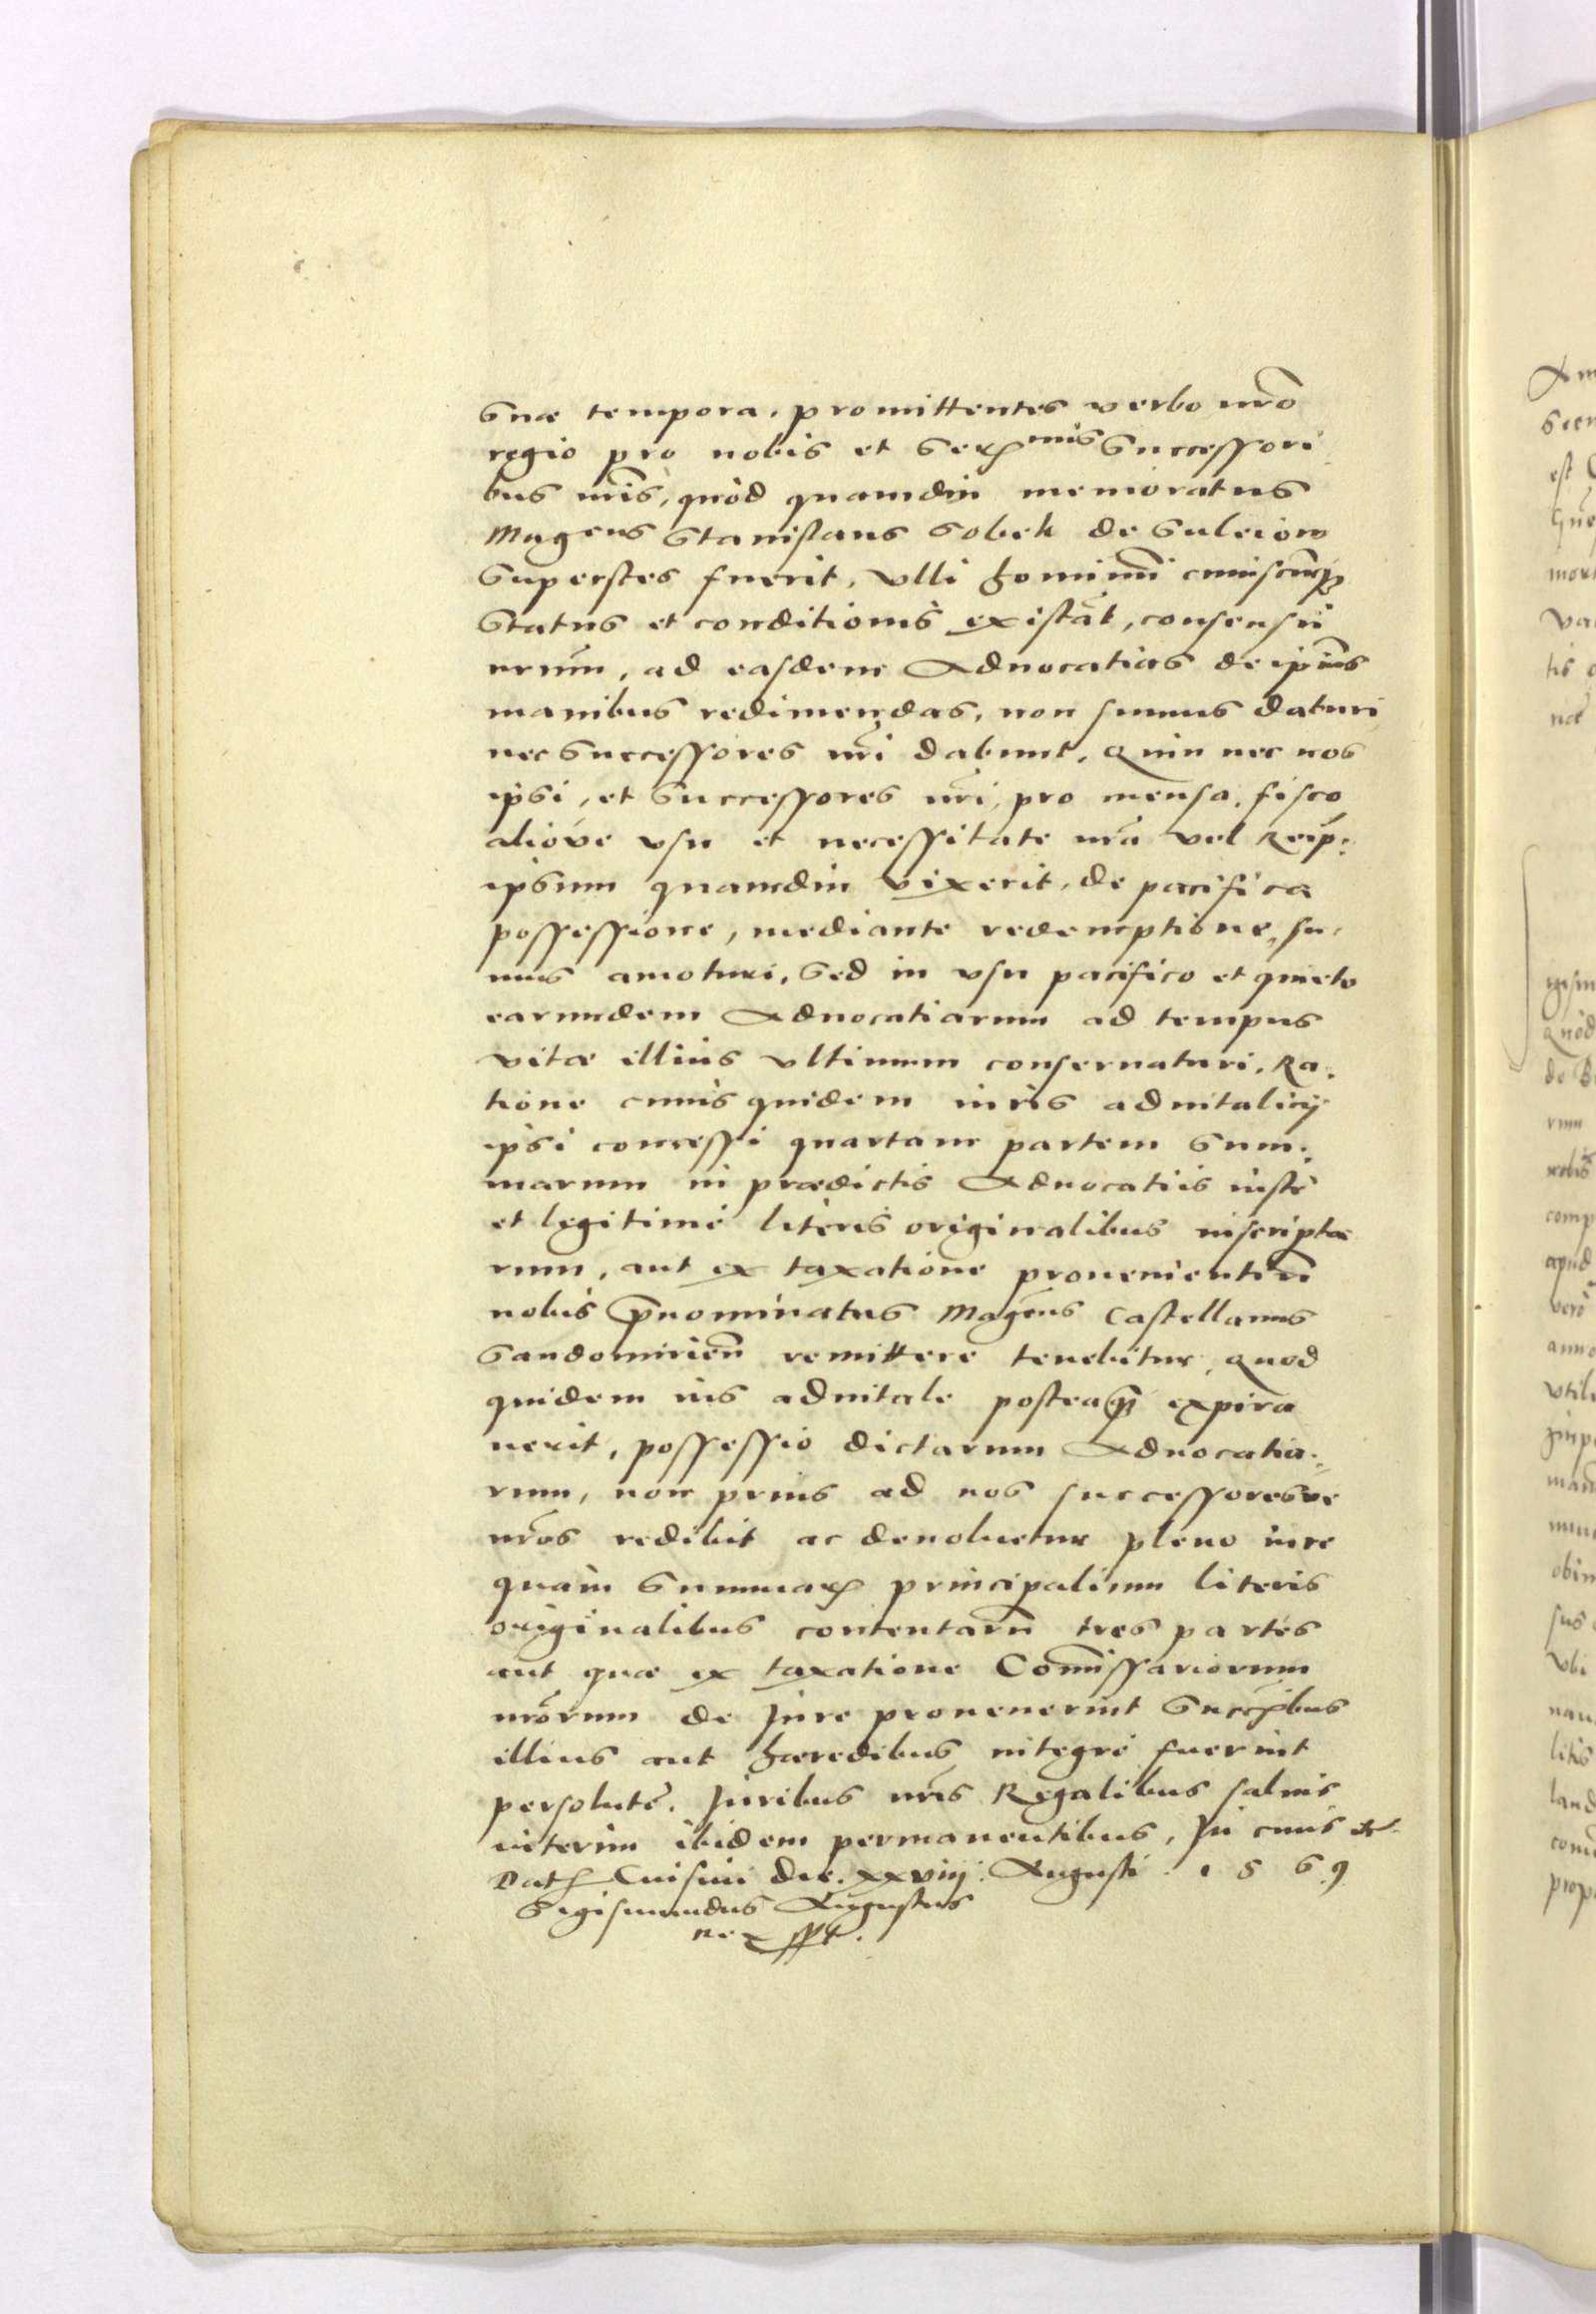 suæ tempora, promittentes verbo nrõ
regio pro nobis et Ser:mis Successori
bus nris, quòd quamdiu memoratus
Magcus Stanislaus Sobek de Suleiow
Superstes fuerit, vlli hominũ cuiuscunq;
Status et conditionis existãt, consensũ
nrum, ad easdem Aduocatias de ipius
manibus redimendas, non sumus daturi
nec Successores nri dabunt. Quin nec nos
ipsi, et Successores nri, pro mensa, fisco
alióve vsu et necessitate nrã vel Reip:
ipsum quamdiu vixerit, de pacifica
possessione, mediante redemptione, su,
mus amoturi, Sed in vsu pacifico et quieto
earumdem Aduocatiarum ad tempus
vitæ illius vltimum conseruaturi. Ra,
tione cuius quidem iuris aduitalicij
ipsi concessi quartam partem Sum,
marum in prædictis Aduocatiis iustè
et legitimè literis originalibus inscripta
rum, aut ex taxatione prouenientiũ
nobis prnominatus Magcus Castellanus
Sandomirieñ remittere tenebitur, quod
quidem ius aduitale posteaq̃ expira
uerit, possessio dictarum Aduocatia,
rum, non prius ad nos successoresve
nros redibit ac deuoluetur pleno iure
quàm Summar principalium literis
originalibus contentarũ tres partes
aut quæ ex taxatione Comissariorum
nrorum de Jure prouenerint Succribus
illius aut hæredibus integrè fuerint
persolutę. Juribus nris Regalibus saluis
interim ibidem permanentibus, In cuius etc.
Dat: Cnisini die. xxviij. Augusti. 1569
Sigismundus Augustus
Rex sspt.